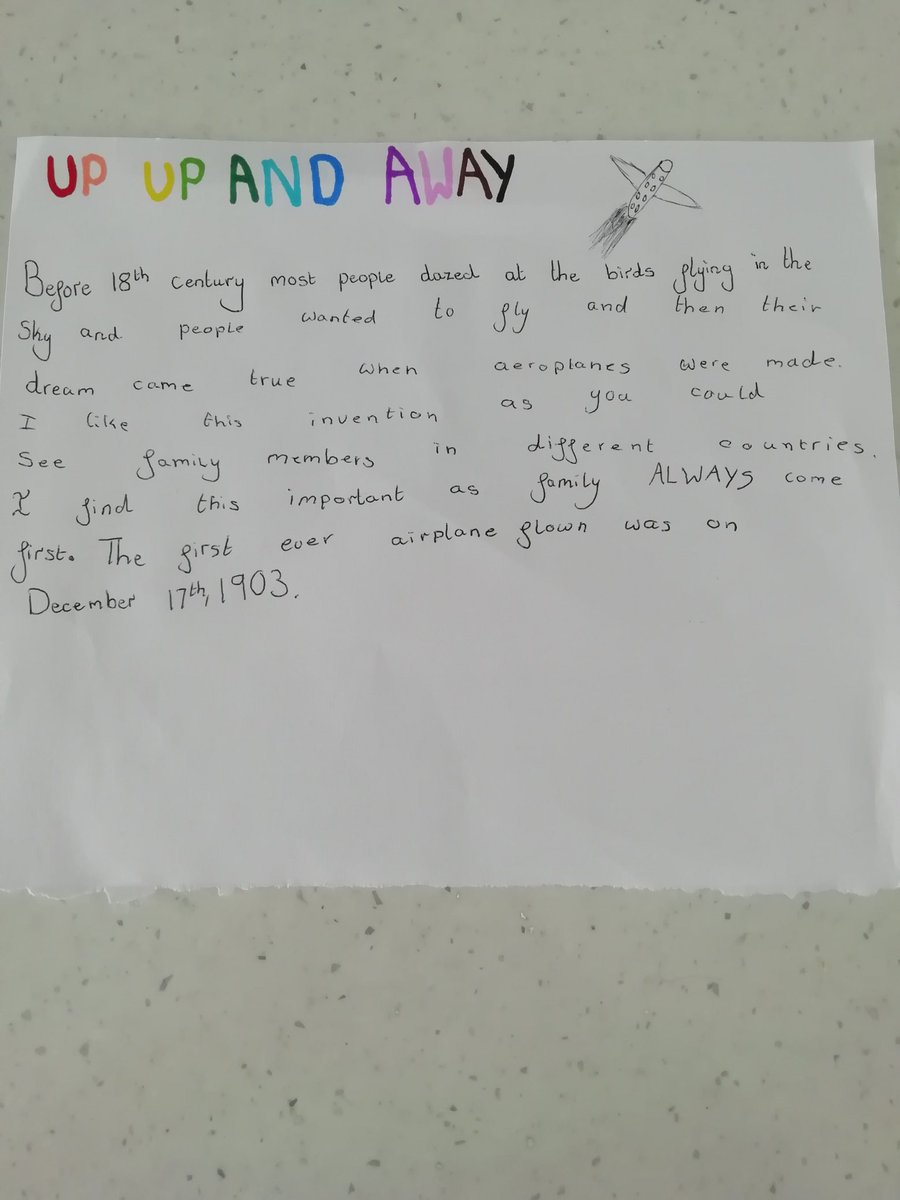 UP UP AND AWAY
Before 18th century most people dazed at the birds flying in the
Sky and people wanted to fly and then their
dream came true when aeroplanes were made.
I like this invention as you could
See family members in different countries.
I find this important as family ALWAYS come
first. The first ever airplane flown was on
December 17th, 1903.